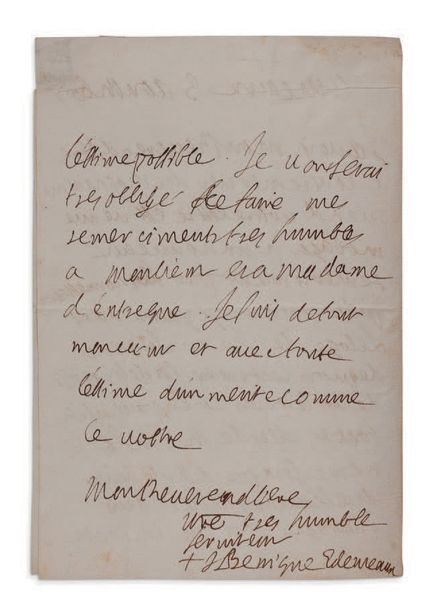 l'estime possible. Je vous serai
tres obligé de faire me
remerciments tres humbles
a monsieur et a madame
d'entregue. Je suis de tout
mon cœur et avec toute
l'estime d'un merite comme
le vostre
Mon Reverend Pere
vre tres humble
serviteur
+ J Benigne E de meaux